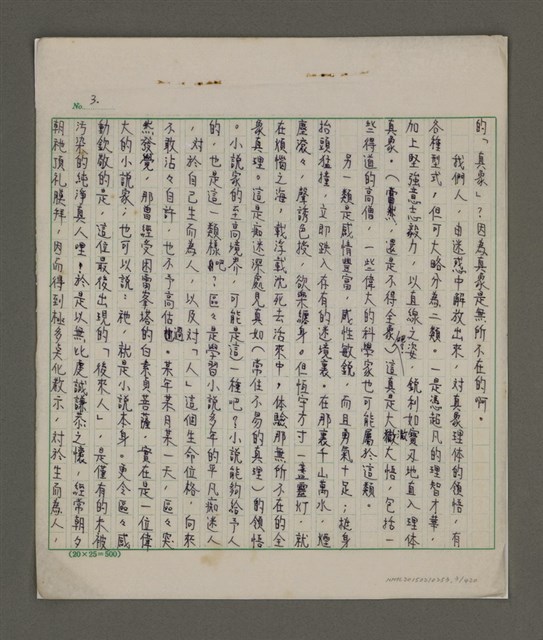 No. 3.
的「真象」？因為真象是無所不在的啊。
我們人，由迷惑中解放出來，對真象理体的領悟，有
各種型式，但可大略分為二類。一是憑超凡的理智才華，
加上堅強意志毅力，以直線之姿，銳利如寶刃地直入理体
真象（當然，還是不得全象）這真是大徹大悟，包括一
些得道的高僧，一些偉大的科學家也可能屬於這類。
另一類是感情豐富，感性敏銳，而且勇氣十足；挺身
抬頭猛撞，立即跌入存有的迷境裏。在那裏千山萬水，煙
塵滾々，聲誘色授，欲樂纏身。但恆守方寸一盞靈灯，就
在煩惱之海，載浮載沈死去活來中，体驗那無所不在的全
象真理。這是痴迷深處見真如（常住不易的真理）的領悟
。小說家的至高境界，可能是這一種吧？小說能夠給予人
的，也是這一類樣貌吧？區々是學習小說多年的平凡痴迷人
，對於自己生而為人，以及對「人」這個生命位格，向來
不敢沾々自許，也不予高估過。某年某月某一天，區々突
然發覺，那曾經受困雷峯塔的白素貞菩薩，實在是一位偉
大的小說家；也可以說：祂，就是小說本身。更令區々感
動欽敬的是，這位最後出現的「後來人」，是僅有的未被
污染的純淨真人哩！於是以無比虔誠謙恭之懷，經常朝夕
朝祂頂礼膜拜，因而得到極多美化教示，對於生而為人，
(20×25=500)